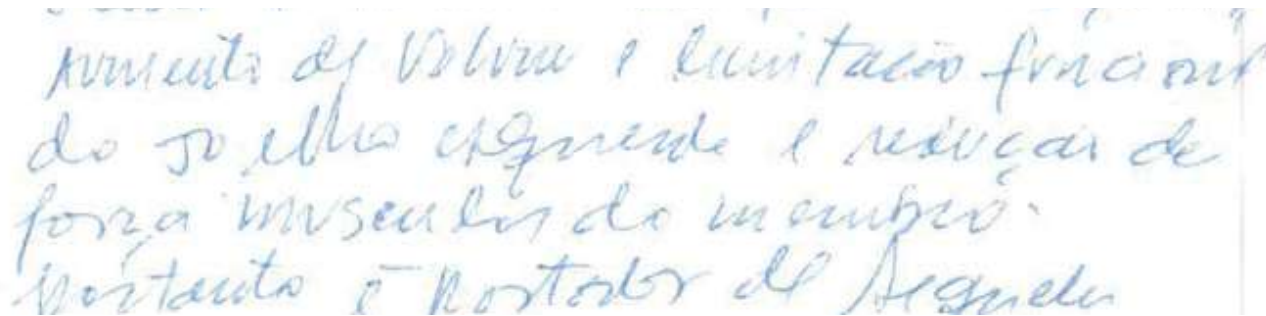 aumento de volume e limitação funcional
do joelho esquerdo e redução de
força muscular do membro.
Portanto é portador de sequela